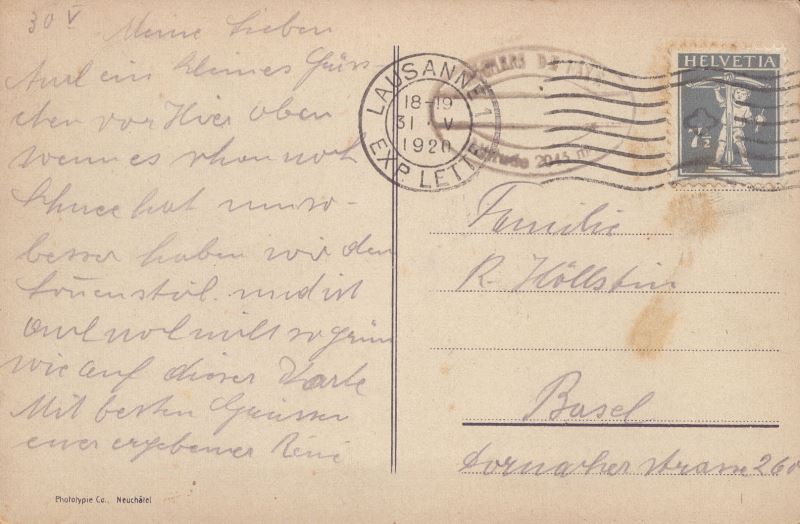 30 V
Meine Lieben
Auch ein kleines Grüss-
chen von Hier oben
wenn es schon noch
Schnee hat umso-
besser haben wir den
Sonnenstich. und ist
auch noch nicht so grün
wie auf dieser Karte
Mit besten Grüssen
euer ergebener René
Phototypie Co., Neuchâtel
LAUSANNE 1
18-19
31 V
1920
EXP. LETT.
Altitude 2045 m
HELVETIA
7½
Familie
R. Höllstin
Basel
Dornacherstrasse 260